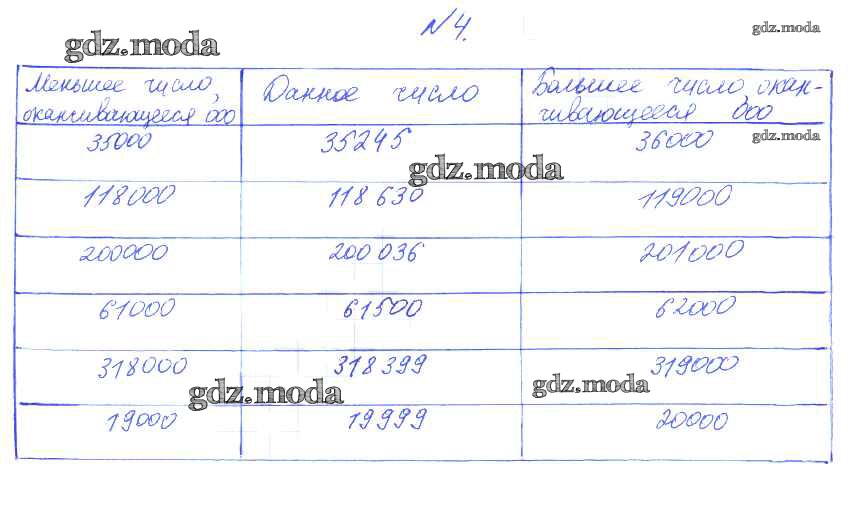 №4.
gdz.moda
gdz.moda
Меньшее число, оканчивающееся 000
Данное число
Большее число, окан-
чивающееся 000
35000 35245 36000
gdz.moda
gdz.moda
118000 118 630 119000
200000 200 036 201000
61000 61500 62000
318000 318 399 319000
gdz.moda
gdz.moda
19000 19999 20000